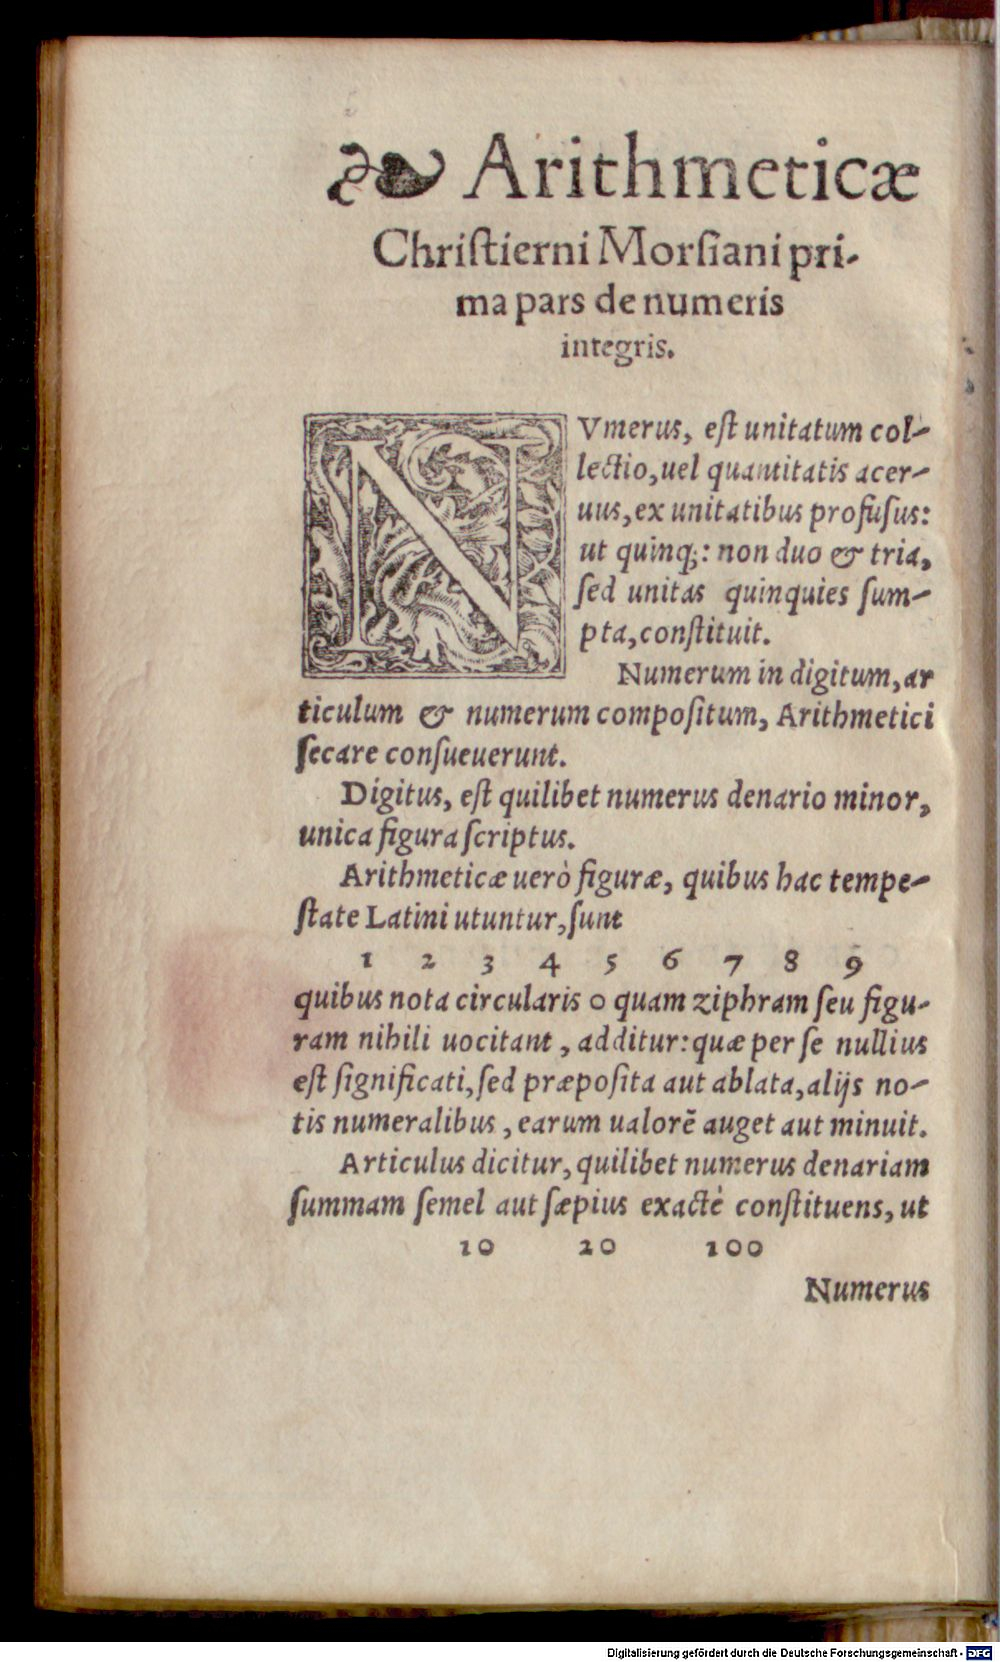 ❧ Arithmeticæ
Chriſtierni Morſiani pri-
ma pars de numeris
integris.
NVmerus, eſt unitatum col-
lectio, uel quantitatis acer-
uus, ex unitatibus profuſus:
ut quinq;: non duo & tria,
ſed unitas quinquies ſum-
pta, conſtituit.
Numerum in digitum, ar
ticulum & numerum compoſitum, Arithmetici
ſecare conſueuerunt.
Digitus, eſt quilibet numerus denario minor,
unica figura ſcriptus.
Arithmeticæ uerò figuræ, quibus hac tempe-
ſtate Latini utuntur, ſunt
1 2 3 4 5 6 7 8 9
quibus nota circularis 0 quam ziphram ſeu figu-
ram nihili uocitant, additur: quæ per ſe nullius
eſt ſignificati, ſed præpoſita aut ablata, alijs no-
tis numeralibus, earum ualorẽ auget aut minuit.
Articulus dicitur, quilibet numerus denariam
ſummam ſemel aut ſæpius exactè conſtituens, ut
10 20 100
Numerus
Digitalisierung gefördert durch die Deutsche Forschungsgemeinschaft - DFG